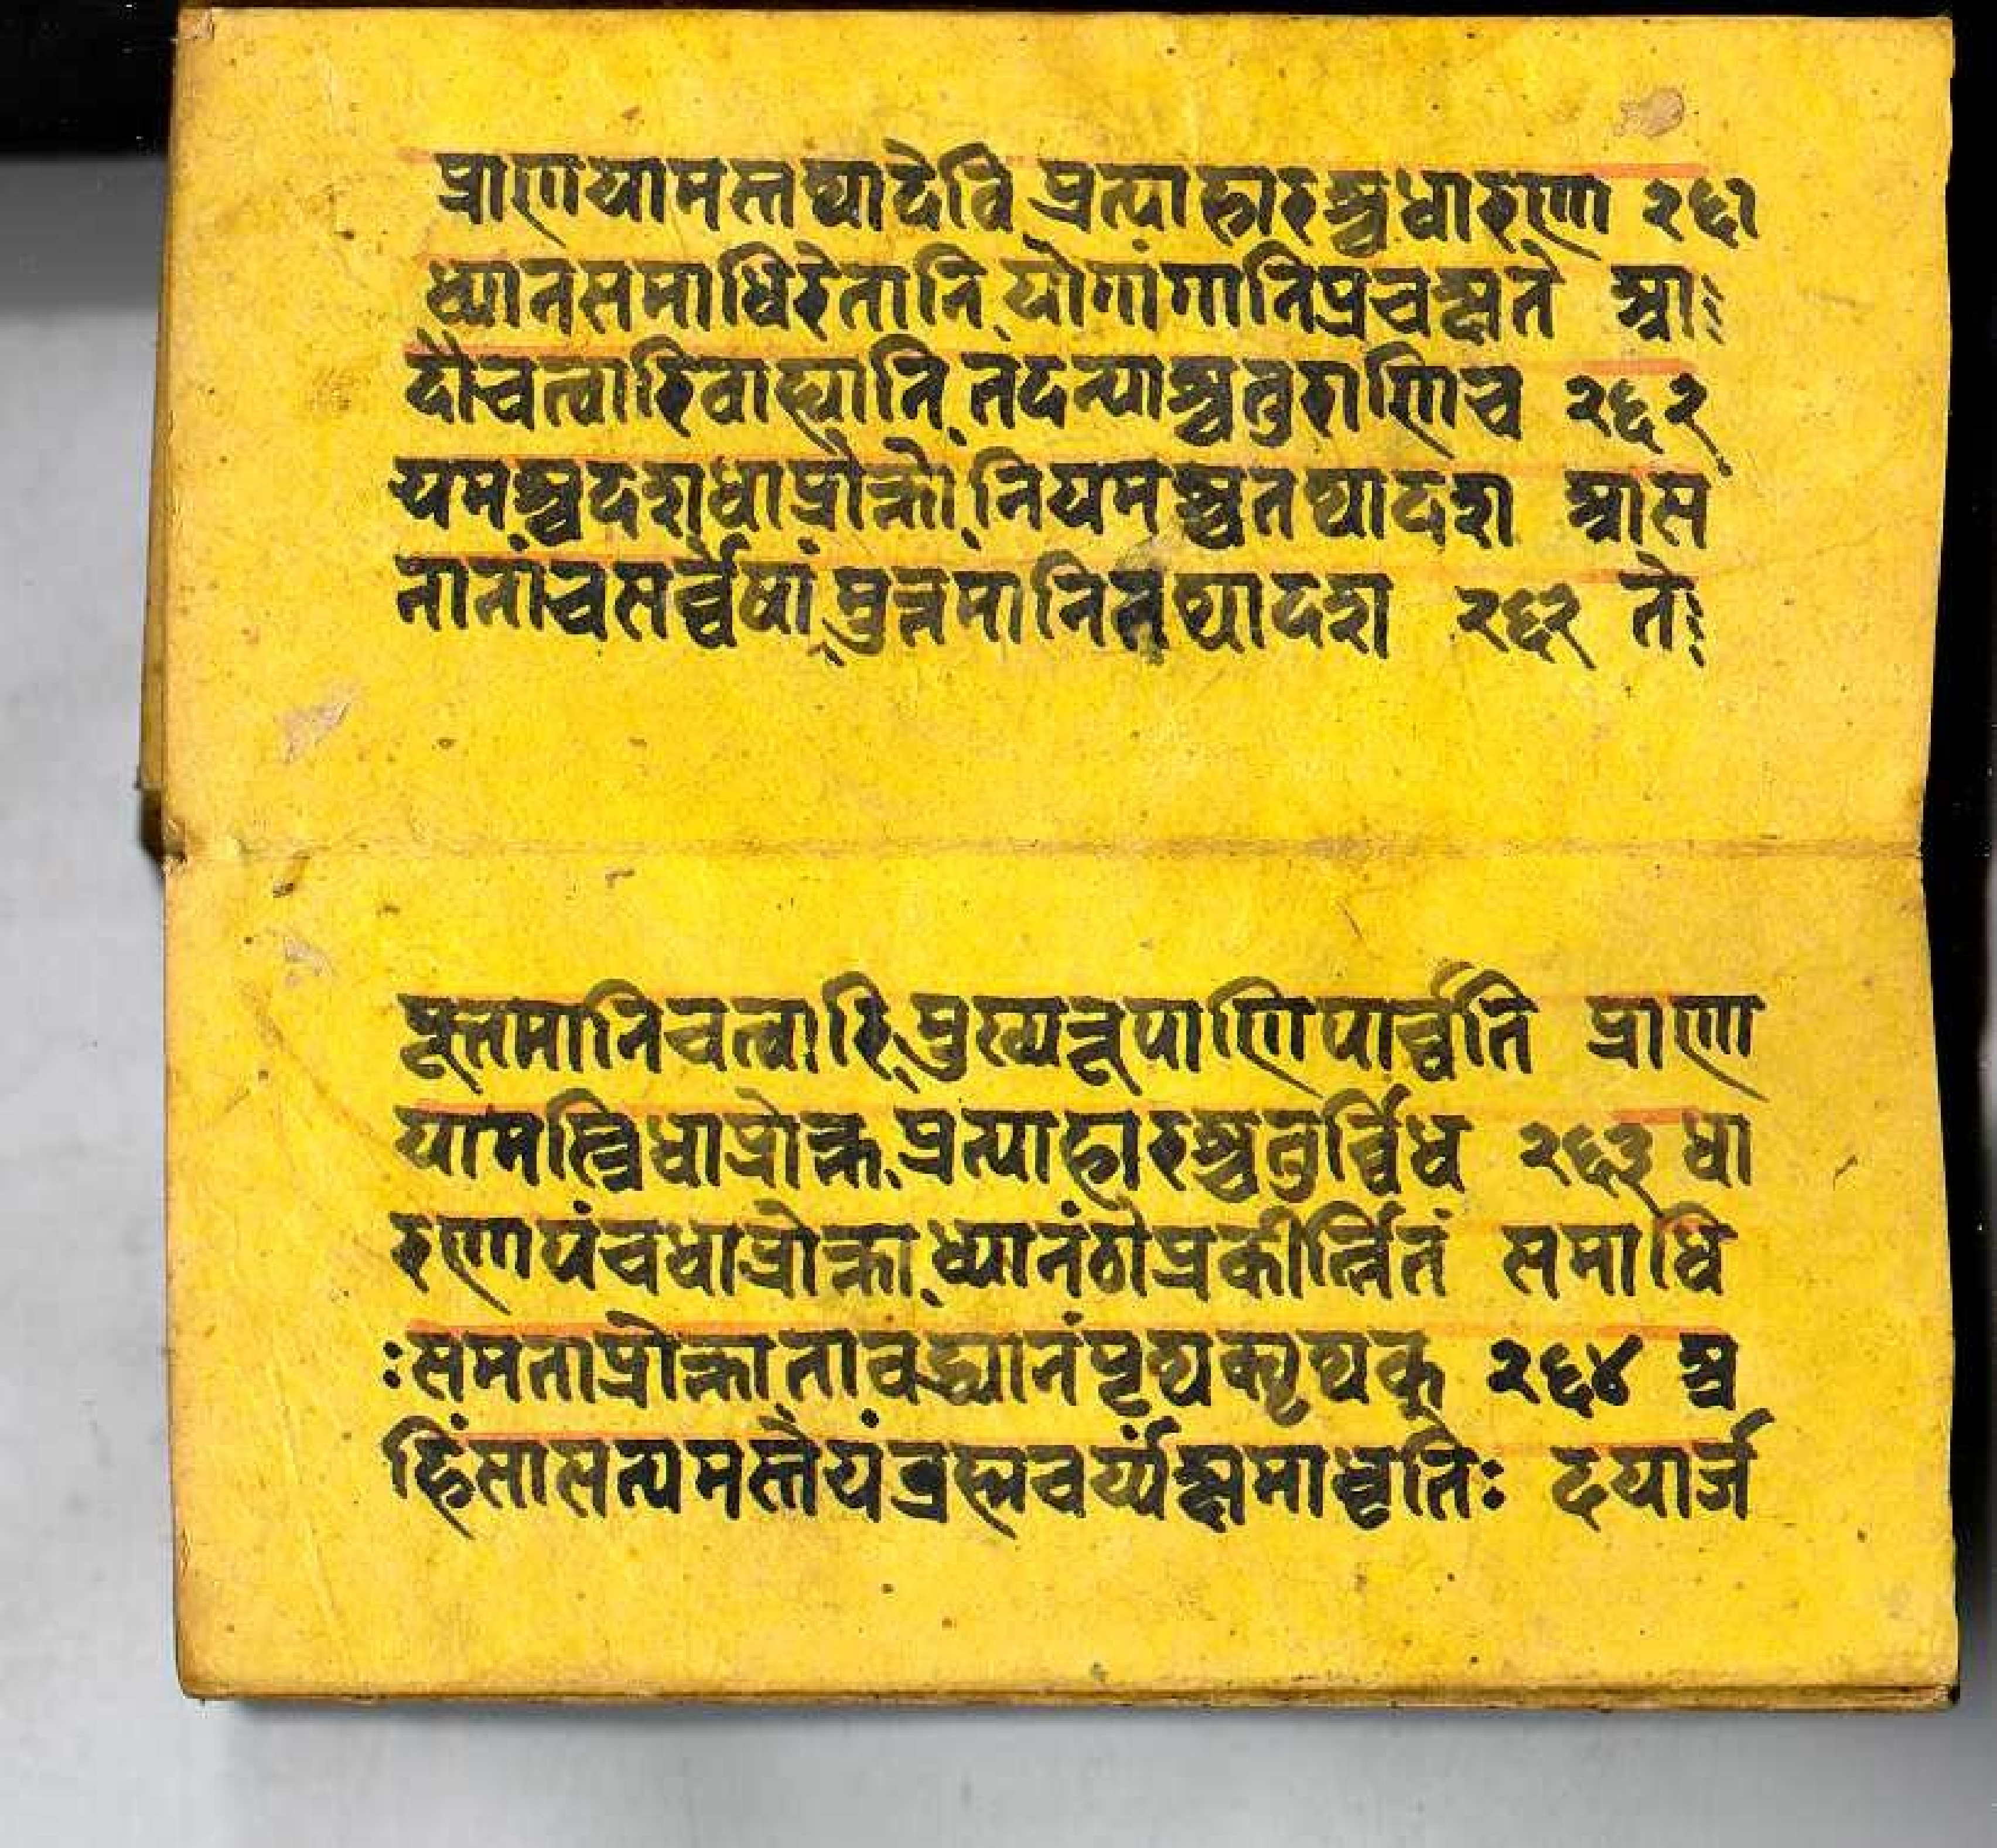 प्राणयामस्तथादेवि प्रत्याहारश्चधारणा २६१
ध्यानसमाधिरेतानि योगांगानिप्रचक्षते आः
दौचत्वारिवाह्यानि तदन्याश्चतुराणिच २६२
यमश्चदशधाप्रोक्तो नियमश्चतथादश आस
नानांचसर्व्वेषां मुत्तमानितथादश २६२ तेः
मूत्तमानिचत्वारि मुख्यनूपाणिपार्व्वति प्राण
यामस्त्रिधाप्रोक्त प्रत्याहारश्चतुर्व्विध २६३ धा
रणापंचधाप्रोक्ता ध्यानंठौप्रकीर्त्तितं समाधि
ःसमताप्रोक्ता तावद्ध्यानंपृथ्यक्पृथ्यक् २६४ अ
हिंसासत्यमस्तेयंब्रह्मचर्य्यंक्षमाधृतिः दयार्ज